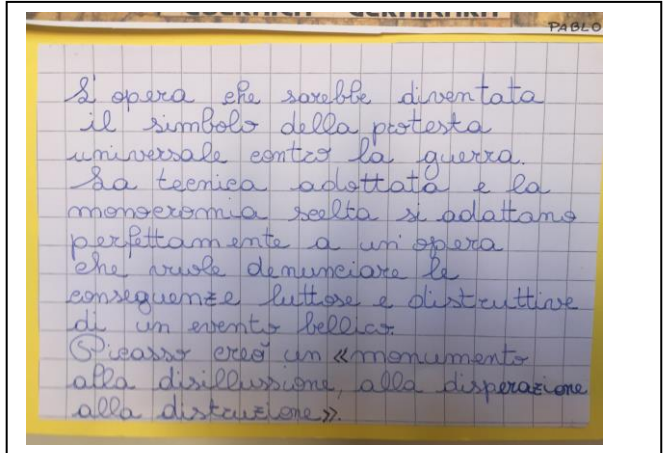 PABLO
L'opera che sarebbe diventata
il simbolo della protesta
universale contro la guerra.
La tecnica adottata e la
monocromia scelta si adattano
perfettamente a un'opera
che vuole denunciare le
conseguenze luttose e distruttive
di un evento bellico.
Picasso creò un «monumento
alla disillussione, alla disperazione
alla distruzione».